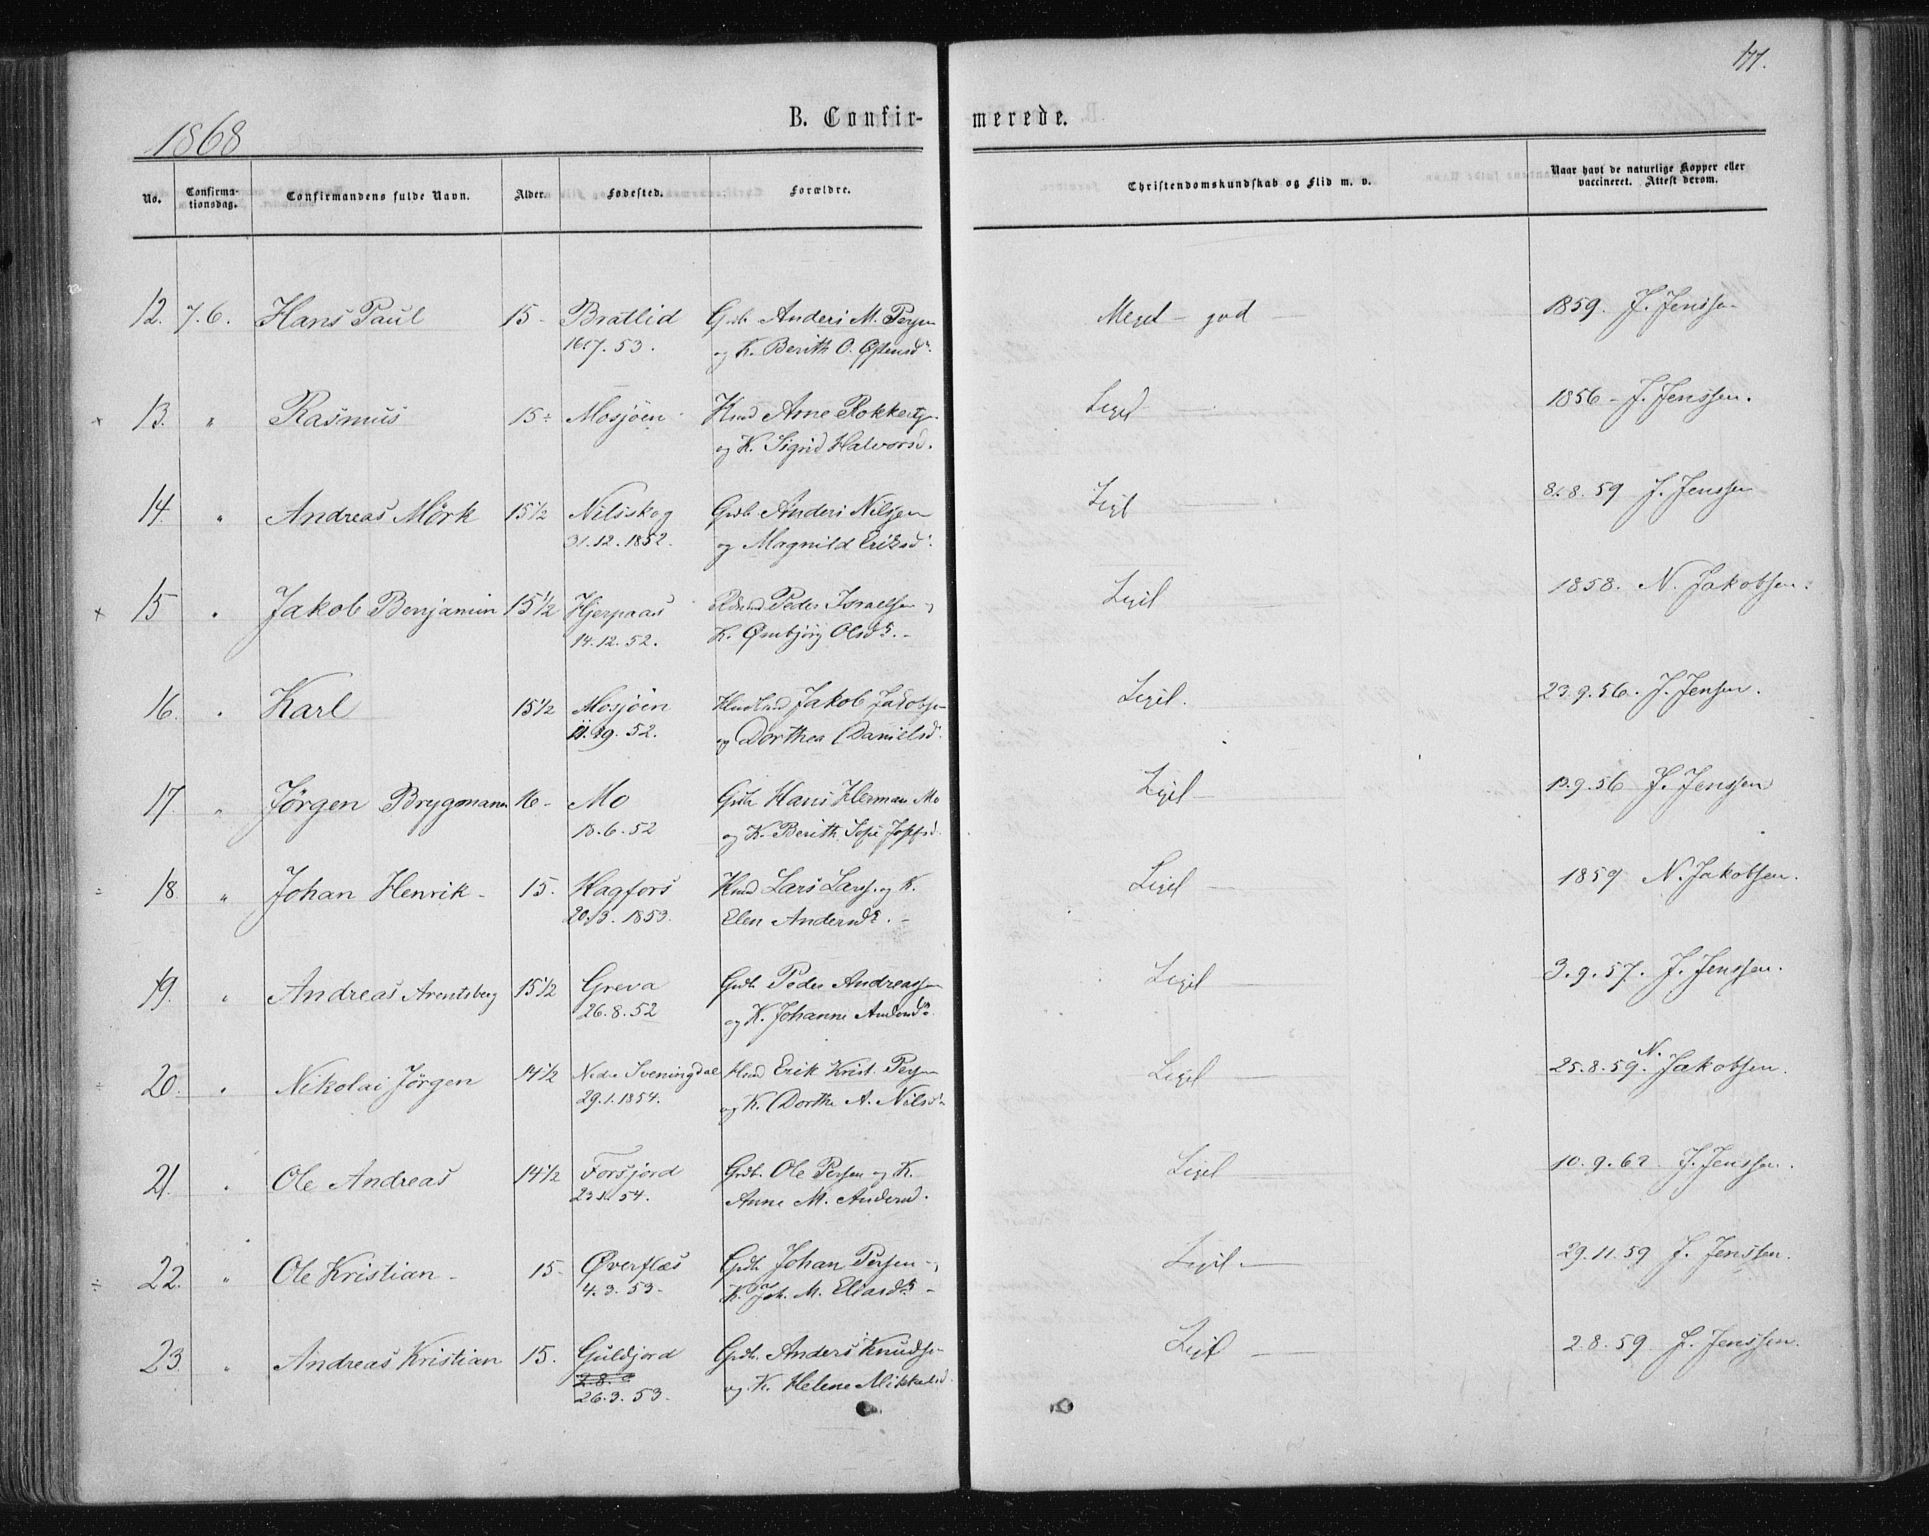 177.
1868
B. Confirmerede.
No. Confirmationsdag. Confirmandens fulde Navn. Alder. Fødested. Forældre. Christendomskundskab og Flid m. v. Naar havt de naturlige Kopper eller vaccineret. Attest derom.
12. 7.6. Hans Paul 15- Bratlid Gdb. Anders M. Persen Meget god 1859. J. Jenssen
16.7.53. og K. Berith O. Østensd.
13. " Rasmus 15- Mosjøen Hmd Arne Ligel 1856 - J. Jenssen.
og K. Sigrid Halvorsd.
14. " Andreas Mørk 15½ Nilsskog Gdb. Anders Nilssen Ligel 31.8.59 J. Jenssen
31.12.1852. og Magnild Eriksd.
15 " Jakob Benjamin 15½ Hjerpaas Peder Israelsen og Ligel 1858. N. Jakobsen.
14.12.52. K. Ørnbjørg Olsd. -
16. " Karl 15½ Mosjøen Jakob Jakobsen Ligel. 23.9.56. J. Jenssen.
52. og Dorthea Danielsd.
17. " Jørgen Brygmann 16- Mo Gdb. Hans Herman Mo Ligel 13.9.56 J. Jenssen
18.6.52 og K. Berith Sofie Josefsd.
18 " Johan Henrik - 15. Hagfors Hmd Lars Larss. og K. Ligel 1859 N. Jakobsen.
20.3.1853. Elen Andersd. -
19. " Andreas Arentsberg 15½ Greva Gdb. Peder Andreassen Ligel 3.9.57. J. Jenssen.
26.8.52 og K. Johanne Andersd.
20. " Nikolai Jørgen 14½ Nedre Sveningdal Hmd Erik Krist. Persen Ligel 25.8.59. N. Jakobsen.
29.1.1854. og K. Dorthe A. Nilsd.
21. " Ole Andreas 14½ Forsjord Gdb. Ole Persen og K. Ligel 10.9.62 J. Jenssen.
54. Anne M. Andersd.
22. " Ole Kristian - 15- Øverflæs Gdb. Johan Persen og Ligel. 29.11.59 J. Jenssen.
4.3.53. K. Joh. M. Eliasd. -
23. " Andreas Kristian 15. Guldjord Gdb. Anders Knudsen Ligel 2.8.59 J. Jenssen.
2.8.
26.3.53. og K. Helene Mikkelsd.